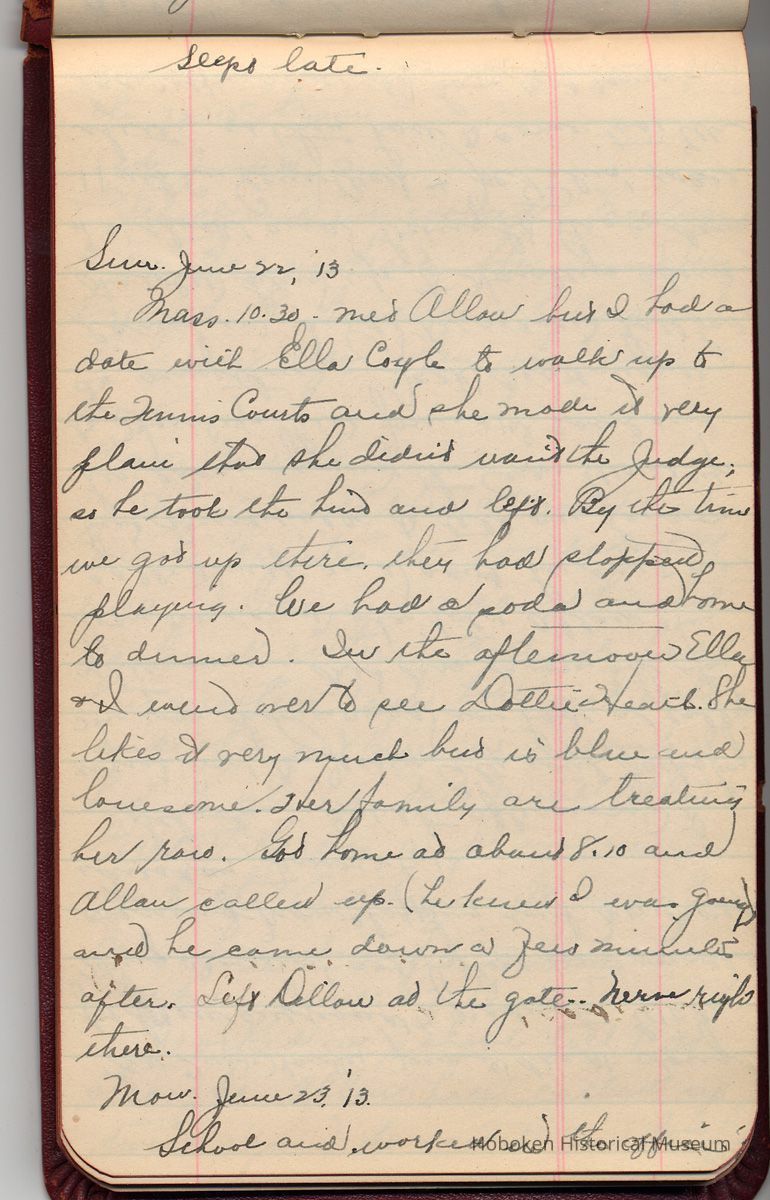 steps late.
Sun. June 22, '13
Mass. 10.30. met Allan but I had a
date with Ella Coyle to walk up to
the Tennis Courts and she made it very
plain that she didn't want the Judge,
so he took the hint and left. By the time
we got up there, they had stopped
playing. We had a soda and home
to dinner. In the afternoon Ella
& I went over to see Dottie. She
likes it very much but is blue and
lonesome. Her family are treating
her raw. Got home at about 8.10 and
Allan called up. (he knew I was going)
and he came down a few minutes
after. Left Allan at the gate.. Nerve right
there.
Mon. June 23, '13.
School and worked at the office
Hoboken Historical Museum